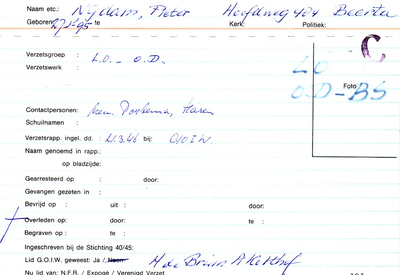 Naam etc.: Nijdam, Pieter Hoofdweg 404 Beerta
Geboren: te Kerk: Politiek:
C
Verzetsgroep : L.O. - O.D.
Verzetswerk :
LO
Foto
O.D - BS
Contactpersonen: Postema, Haren
Schuilnaam :
Verzetsrapp. ingel. dd. : 21.3.46 bij: GOIW.
Naam genoemd in rapp.:
op bladzijde:
Gearresteerd op : door:
Gevangen gezeten in :
Bevrijd op : uit : door:
Overleden op: door: te :
Begraven op : te :
Ingeschreven bij de Stichting 40/45:
Lid G.O.I.W. geweest: Ja / Neen H de Bruin
Nu lid van: N.F.R. / Expogé / Verenigd Verzet